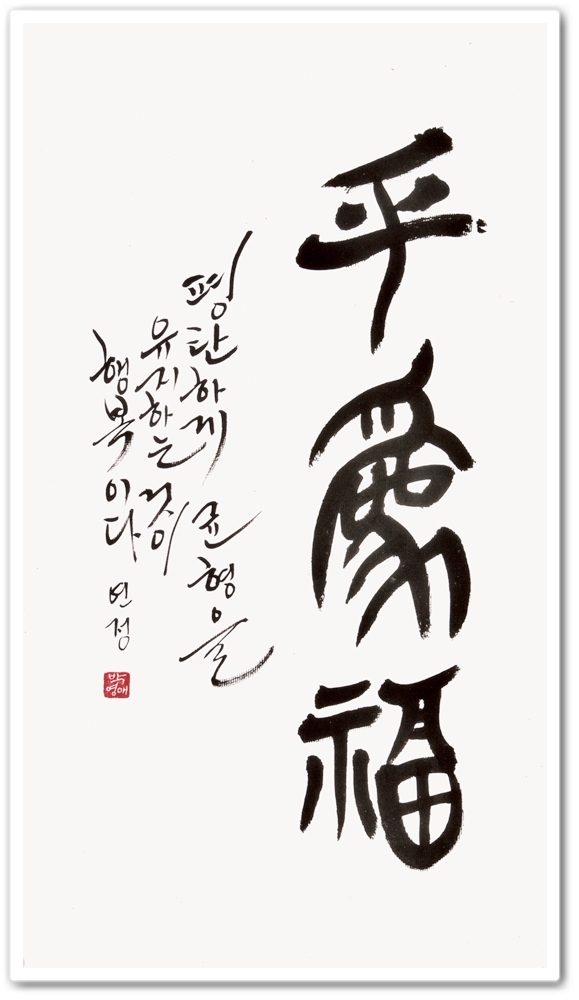 平爲福
평탄하게 균형을
유지하는 것이
행복이다
연정
박영애